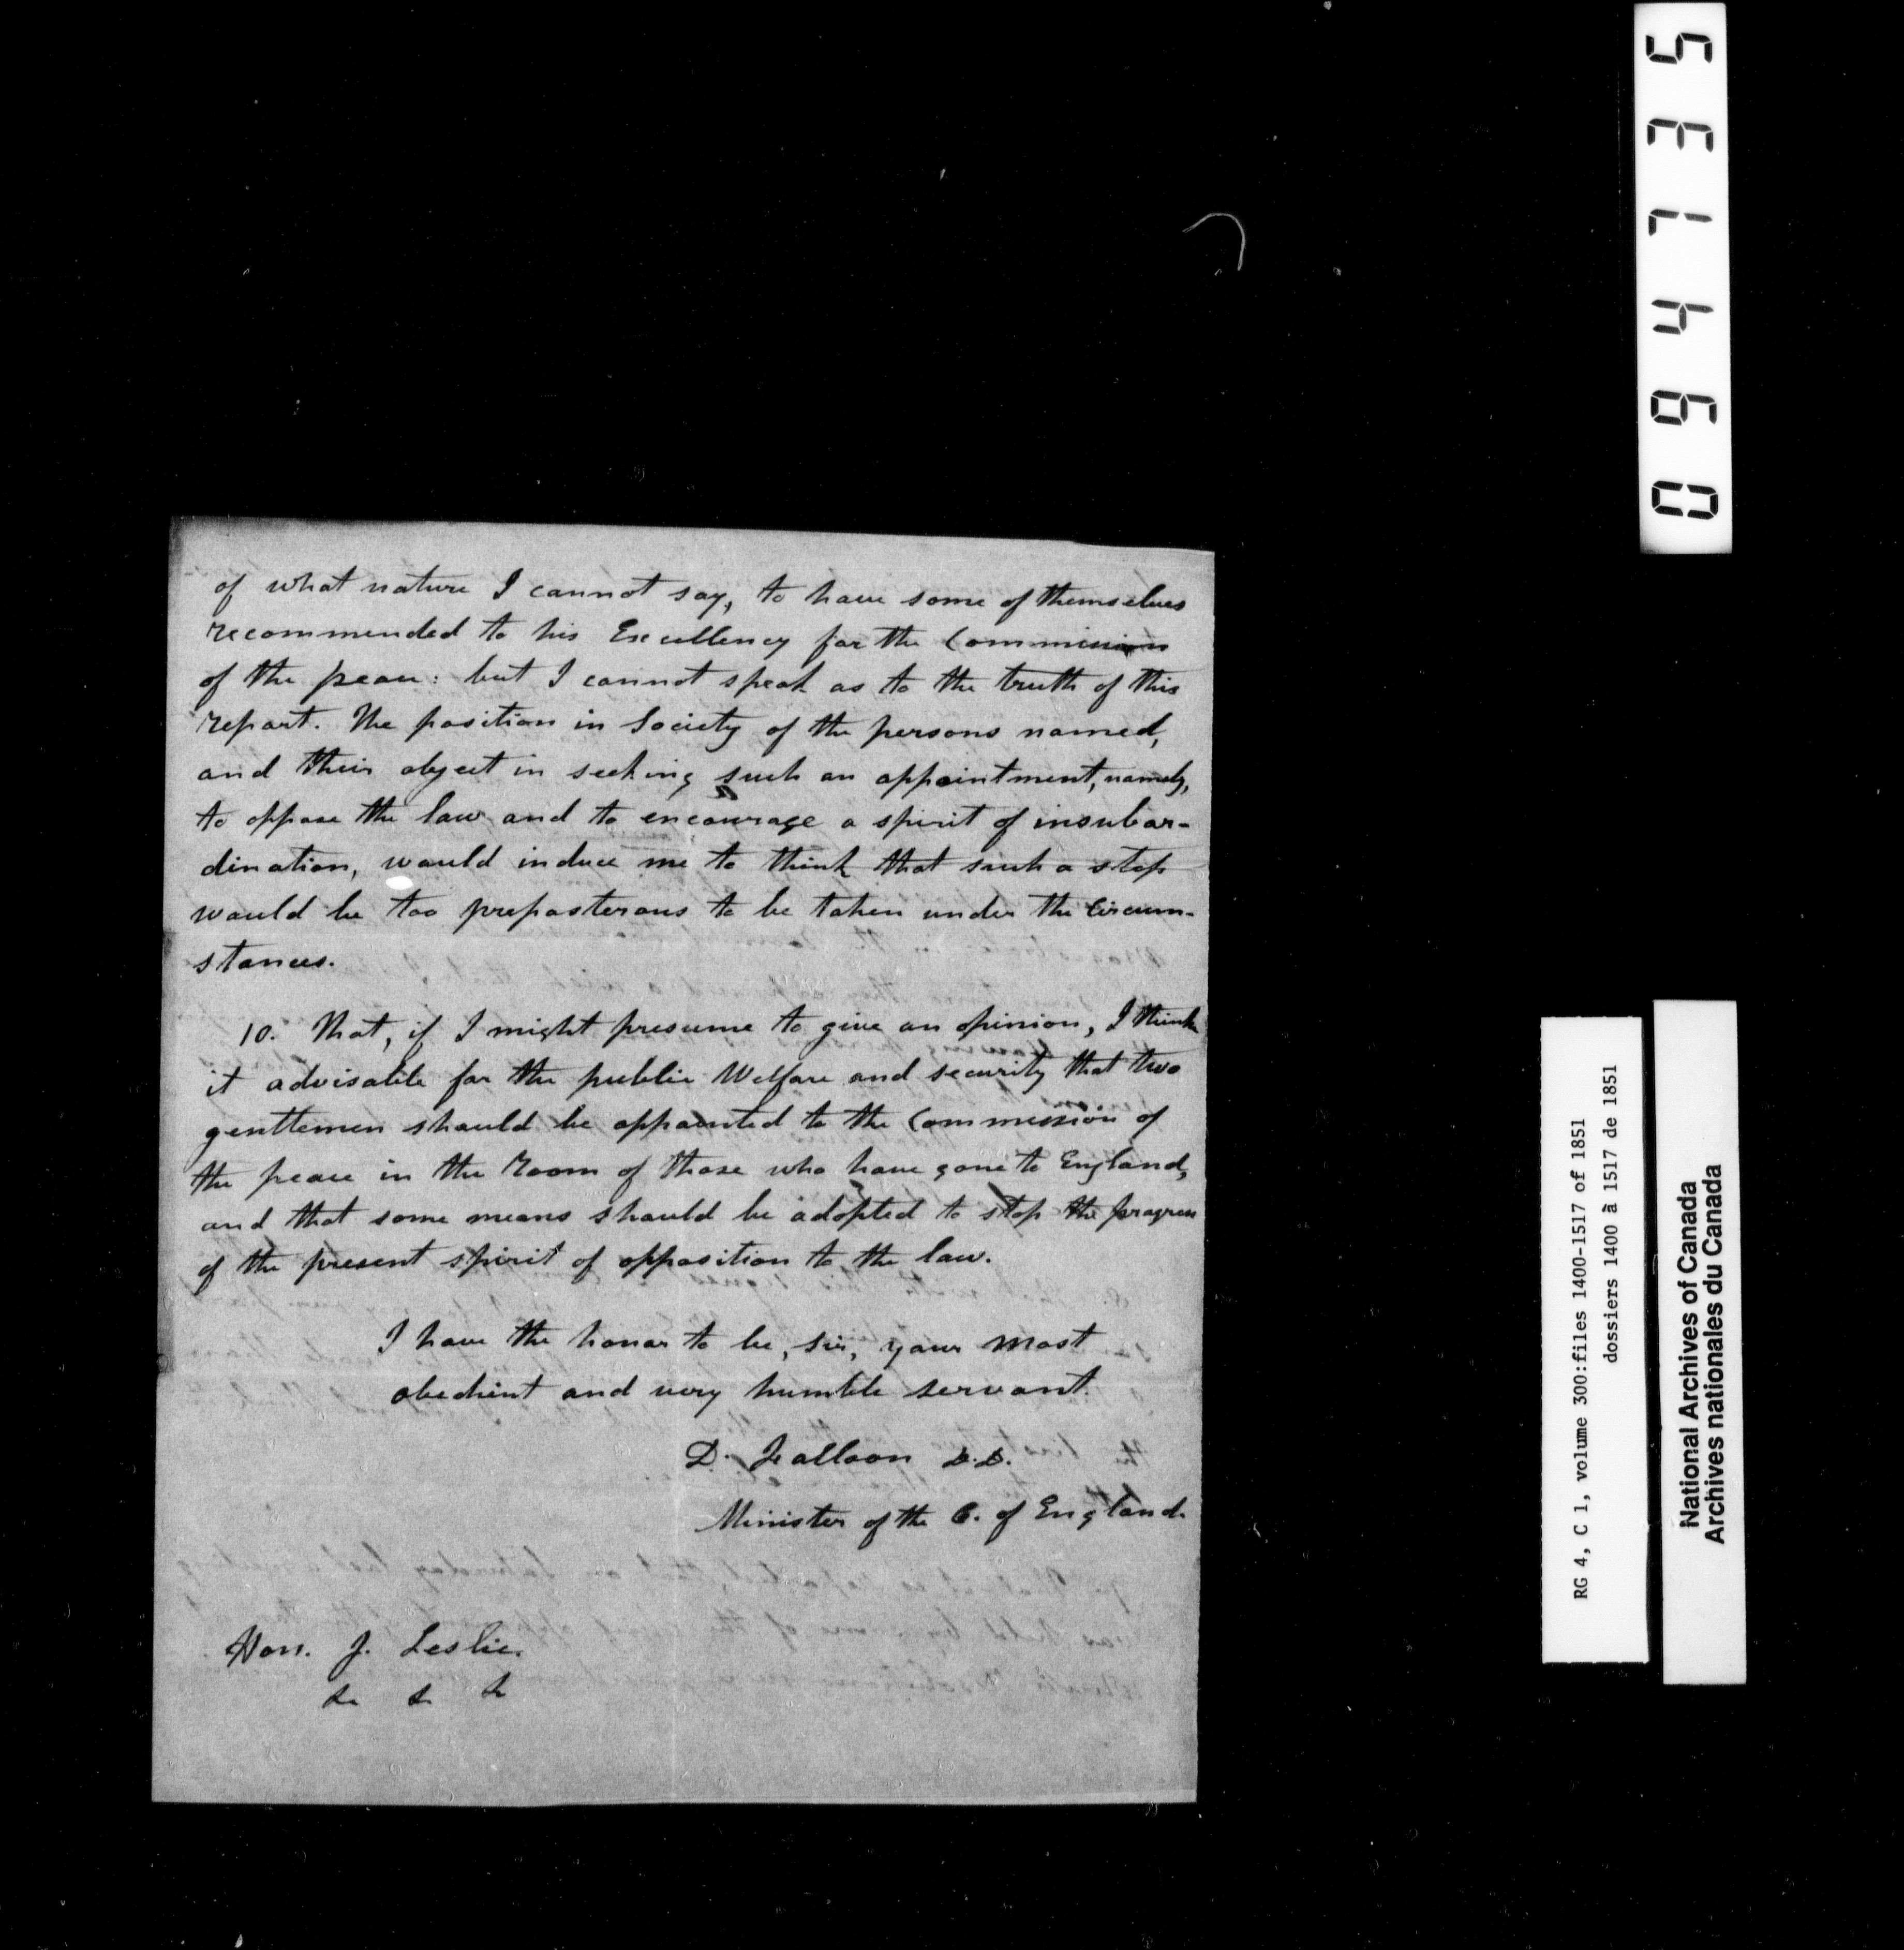 of what nature I cannot say, to have some of themselves
recommended to his Excellency for the Commission
of the peace: but I cannot speak as to the truth of this
report. The position in Society of the persons named,
and their object in seeking such an appointment, namely,
to oppose the law and to encourage a spirit of insubor-
dination, would induce me to think that such a step
would be too preposterous to be taken under the circum-
stances.
10. That, if I might presume to give an opinion, I think
it advisable for the public Welfare and security that two
gentlemen should be appointed to the Commission of
the peace in the room of those who have gone to England,
and that some means should be adopted to stop the progress
of the present spirit of opposition to the law.
I have the honor to be, sir, your most
obedient and very humble servant.
D. Falloon D.D.
Minister of the C. of England.
Hon. J. Leslie.
&c &c &c
094735
RG 4, C 1, volume 300:files 1400-1517 of 1851
dossiers 1400 à 1517 de 1851
National Archives of Canada
Archives nationales du Canada